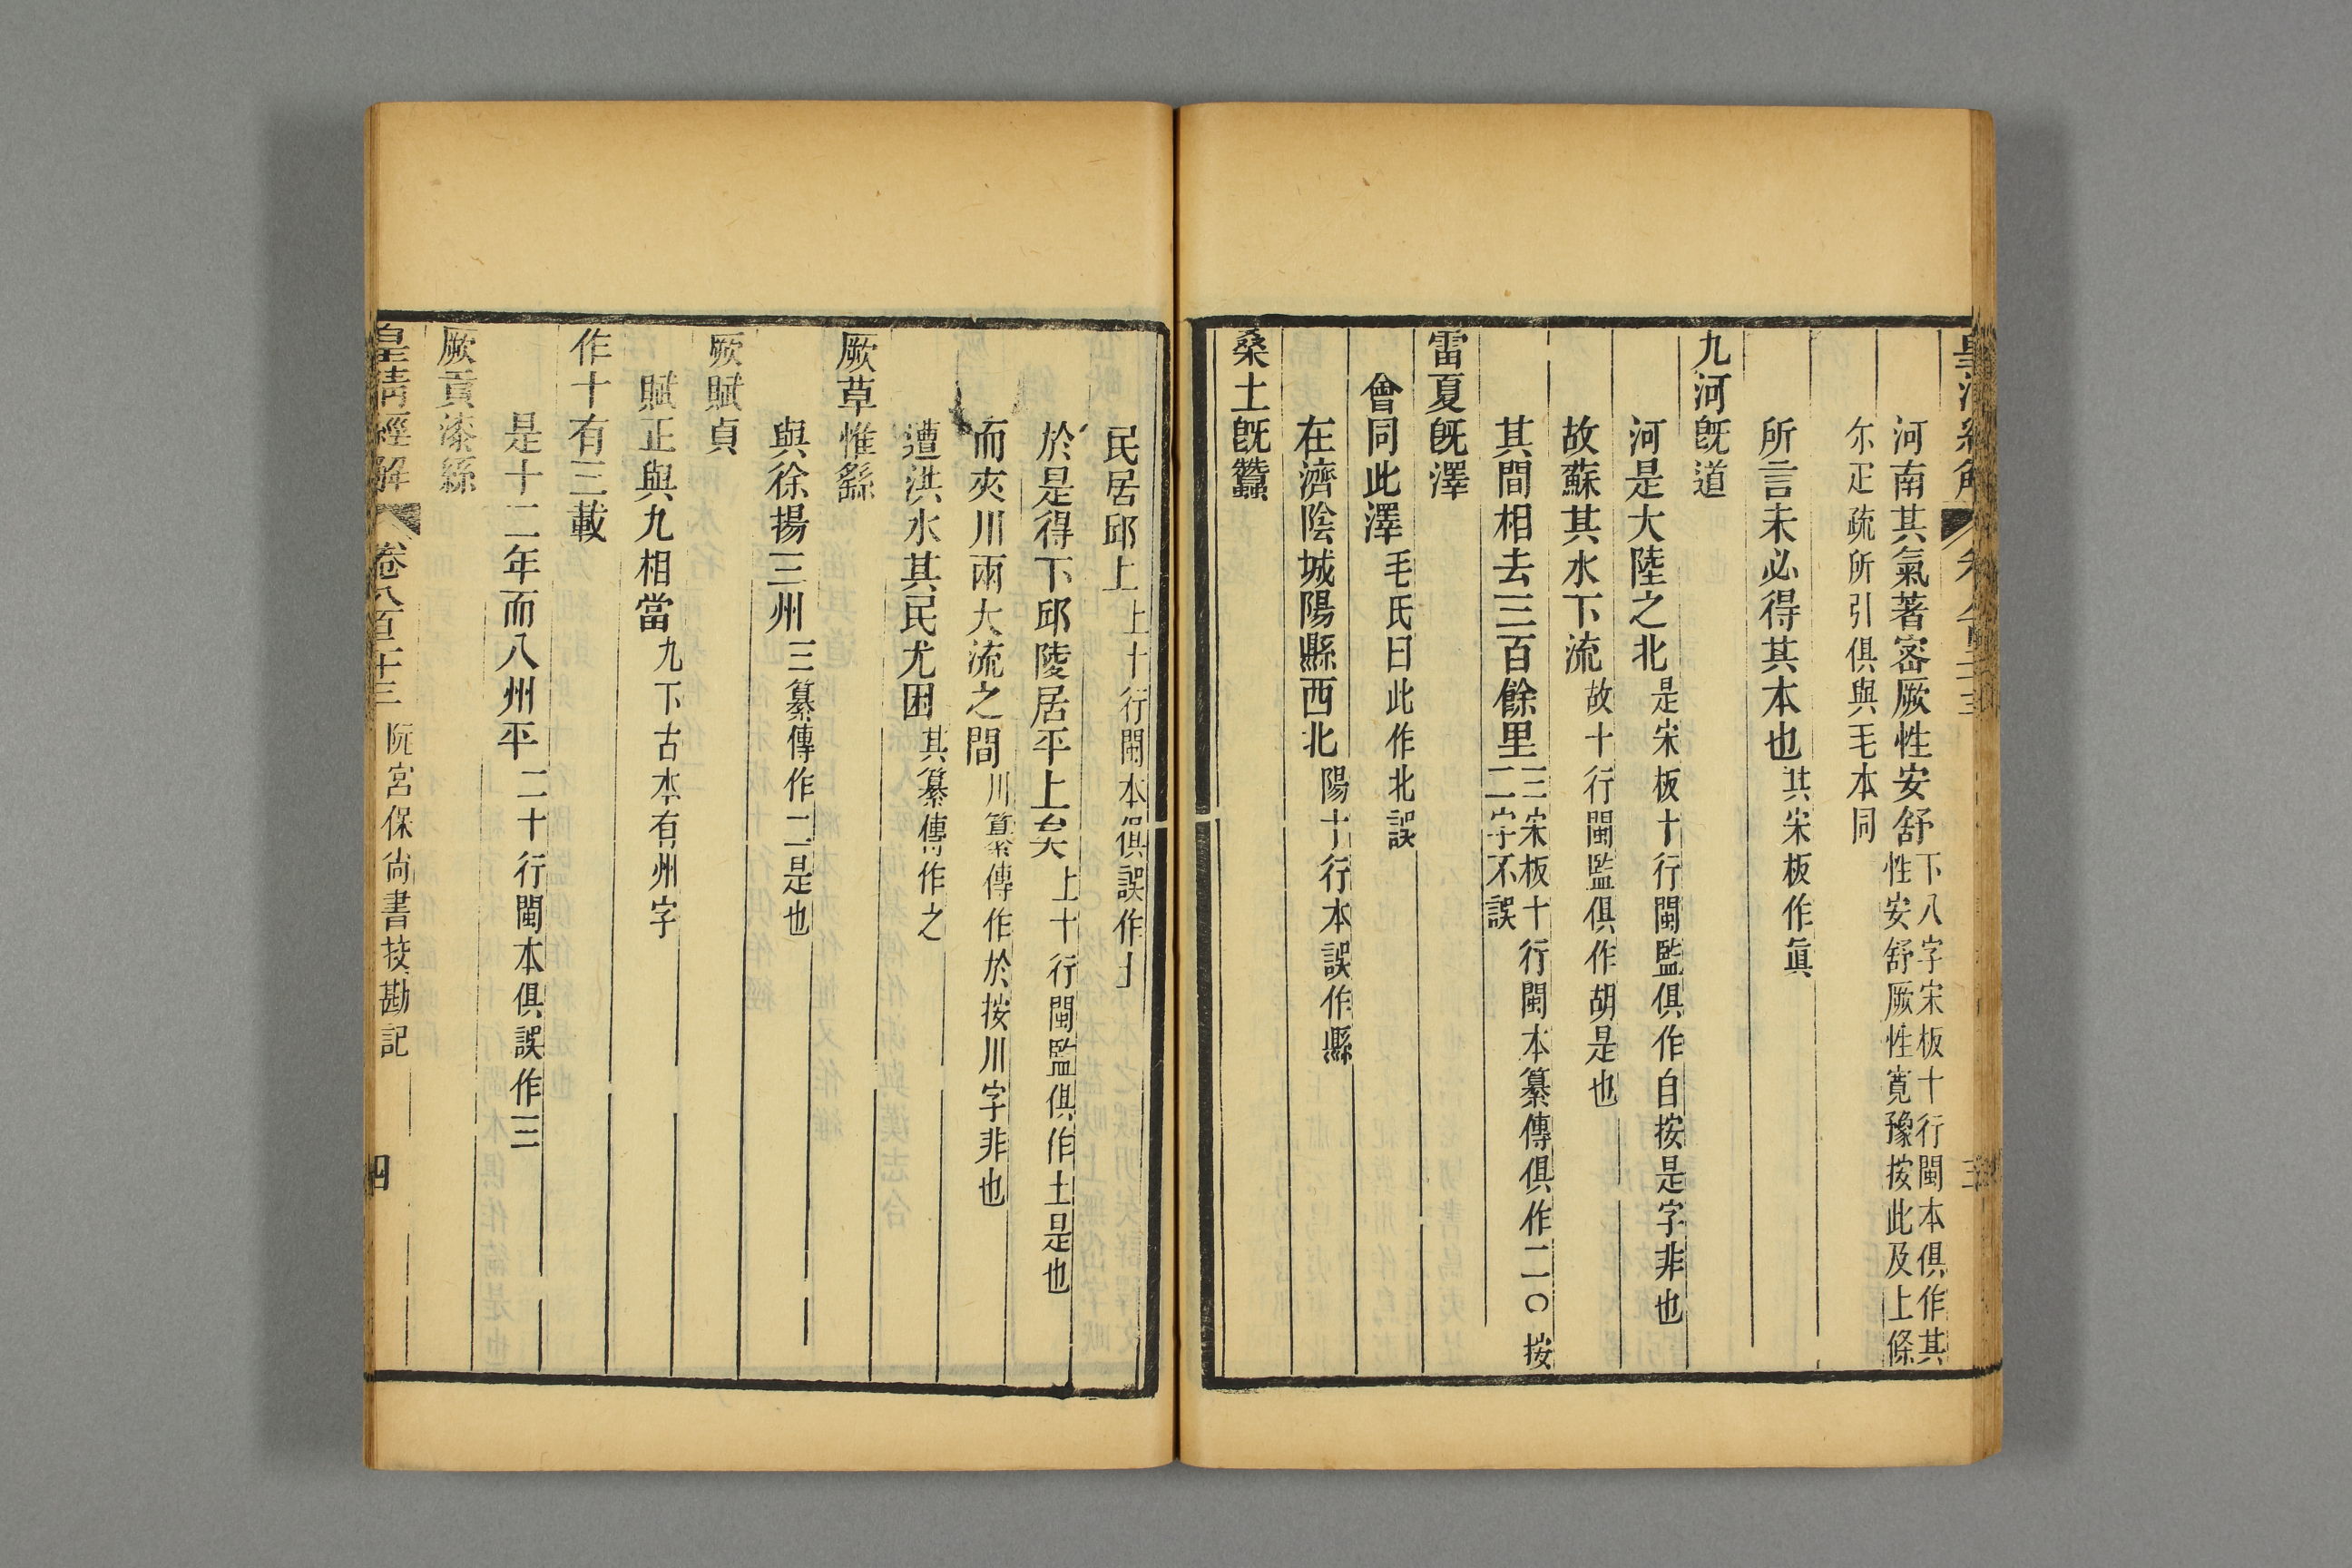 皇清經解
河南其氣著宻厥性安舒下八字宋板十行閩本俱作其性安舒厥性寬豫按此及上條
尓疋疏所引俱與毛本同
所言未必得其本也其宋板作眞
九河旣道
河是大陸之北是宋板十行閩監俱作自按是字非也
故蘇其水下流故十行閩監俱作胡是也
其間相去三百餘里三宋板十行閩本纂傳俱作二〇按二字不誤
雷夏旣澤
會同此澤毛氏曰此作北誤
在濟陰城陽縣西北陽十行本誤作縣
桑土旣蠶
民居邱上上十行閩本俱誤作土
於是得下邱陵居平上矣上十行閩監俱作土是也
而夾川兩大流之間川纂傳作於按川字非也
遭洪水其民尤困其纂傳作之
厥草惟繇
與徐揚三州三纂傳作二是也
厥賦貞
賦正與九相當九下古本有州字
作十有三載
是十二年而八州平二十行閩本俱誤作三
厥貢漆絲
皇清經解 卷八百二十三 阮宮保尚書挍勘記 四